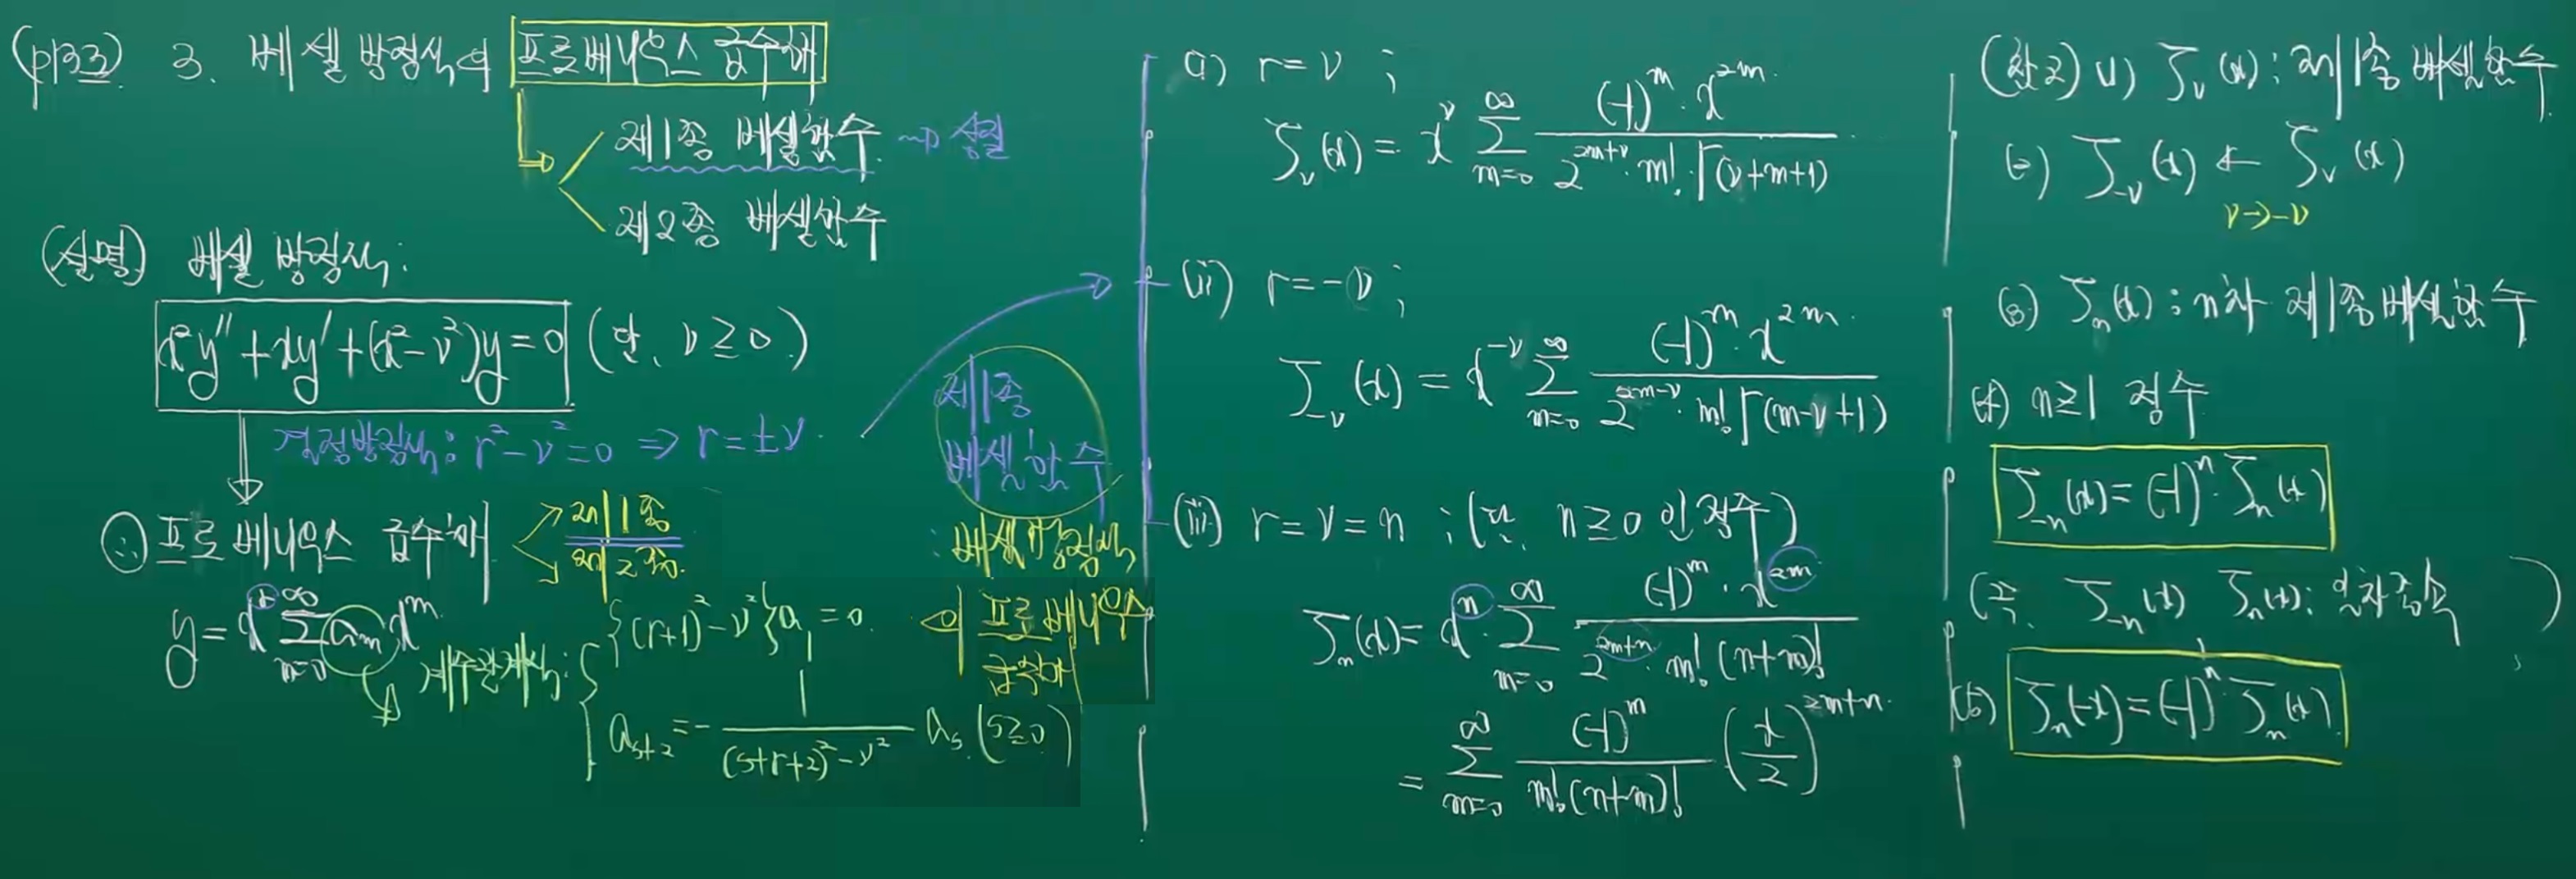 (p133) 3. 베셀 방정식의 프로베니우스 급수해
제1종 베셀함수 → 성질
제2종 베셀함수
(설명) 베셀 방정식:
x²y″+xy′+(x²-ν²)y=0 (단, ν≥0)
결정방정식: r²-ν²=0 ⇒ r=±ν
∴ 프로베니우스 급수해
제1종
제2종
y=x^r ∑_{m=0}^{∞} a_m x^m
계수관계식:
{(r+1)²-ν²}a₁=0
a_{s+2}=-\frac{1}{(s+r+2)²-ν²} a_s (s≥0)
제1종
베셀함수
: 베셀방정식
의 프로베니우스
급수해
(i) r=ν ;
J_ν(x)=x^ν ∑_{m=0}^{∞} \frac{(-1)^m·x^{2m}}{2^{2m+ν}·m!·Γ(ν+m+1)}
(ii) r=-ν ;
J_{-ν}(x)=x^{-ν} ∑_{m=0}^{∞} \frac{(-1)^m·x^{2m}}{2^{2m-ν}·m!Γ(m-ν+1)}
(iii) r=ν=n ; (단, n≥0 인 정수)
J_n(x)=x^n·∑_{m=0}^{∞} \frac{(-1)^m·x^{2m}}{2^{2m+n}·m!(n+m)!}
=∑_{m=0}^{∞} \frac{(-1)^m}{m!(n+m)!} (\frac{x}{2})^{2m+n}
(참고) (1) J_ν(x) : 제1종 베셀함수
(2) J_{-ν}(x) ← J_ν(x)
ν→-ν
(3) J_n(x) : n차 제1종베셀함수
(4) n≥1 정수
J_{-n}(x)=(-1)^n·J_n(x)
(즉, J_{-n}(x) J_n(x): 일차종속)
(5) J_n(-x)=(-1)^n J_n(x)